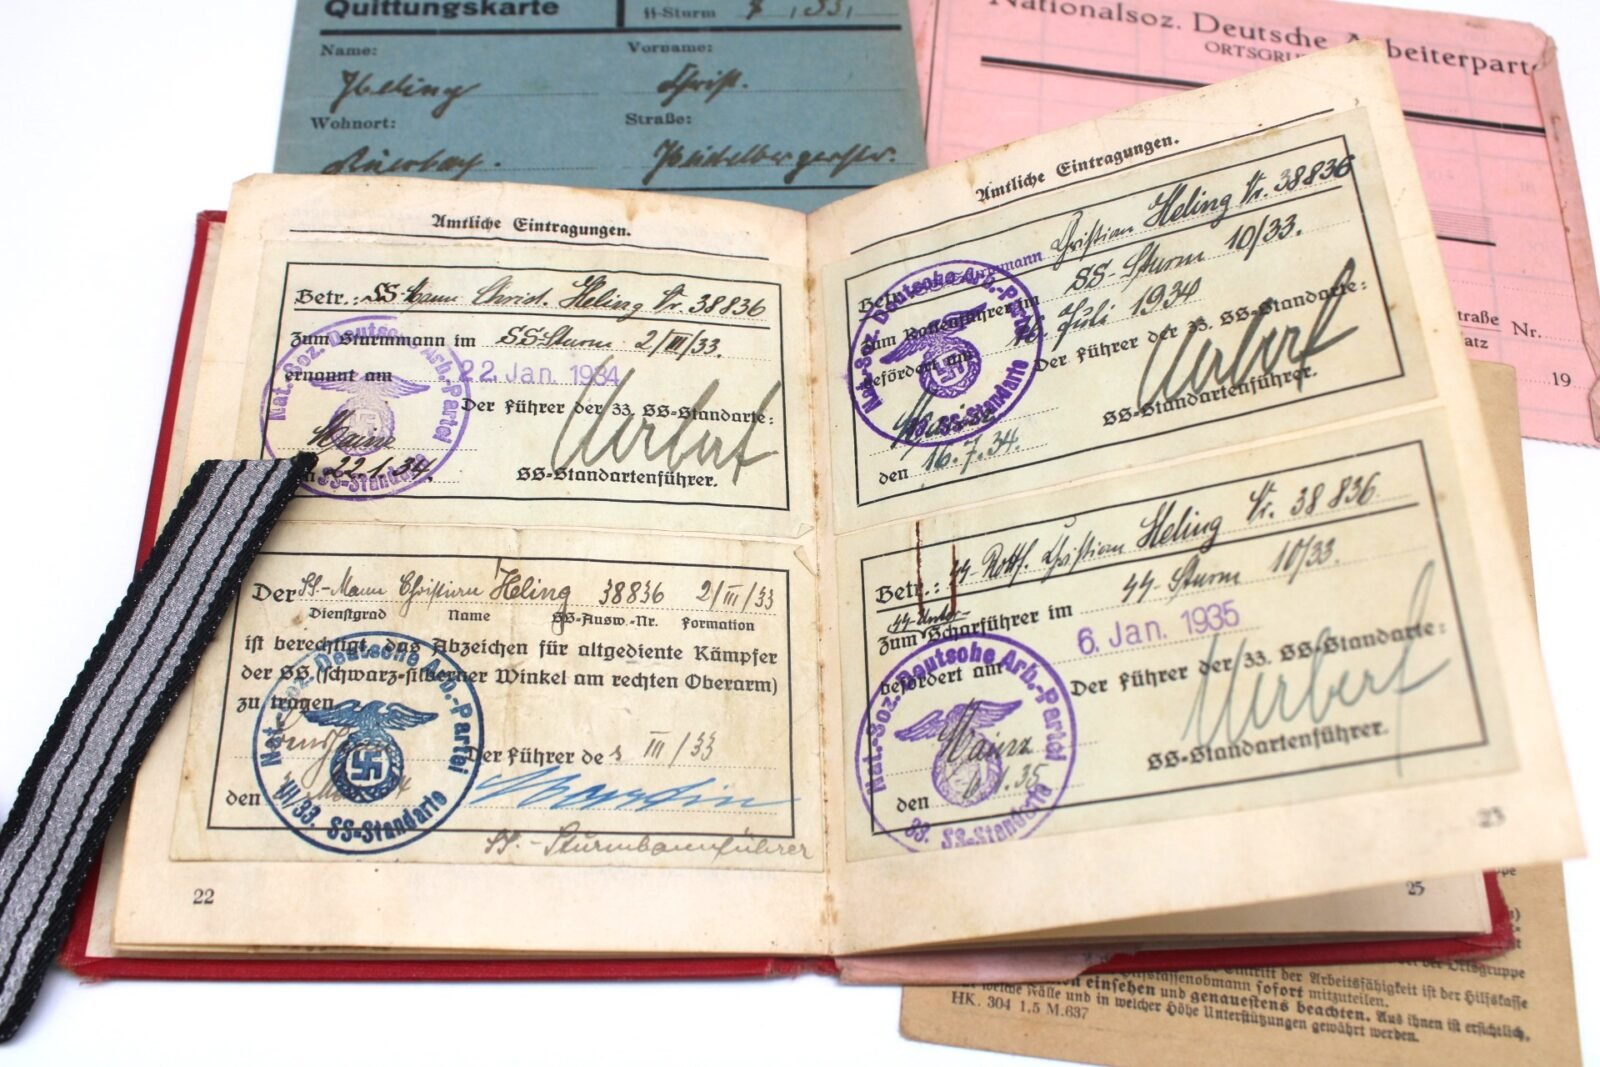 Quittungskarte
SS-Sturm
Name:
Vorname:
Heling
Christ.
Wohnort:
Straße:
Auerbach.
Heidelbergerstr.
Nationalsoz. Deutsche Arbeiterparte
ORTSGRU
Straße Nr.
latz
19
Amtliche Eintragungen.
Betr.: SS-Mann Christ. Heling Nr. 38836
Zum Sturmmann im SS-Sturm 2/III/33.
ernannt am 22. Jan. 1934
Der Führer der 33. SS-Standarte:
Mainz
22.1.34.
SS-Standartenführer.
Nat.-Soz. Deutsche Arb.-Partei
SS-Standarte
Der SS-Mann Christian Heling 38836 2/III/33
Dienstgrad Name SS-Ausw.-Nr. Formation
ist berechtigt, das Abzeichen für altgediente Kämpfer
der SS (schwarz-silberner Winkel am rechten Oberarm)
zu tragen
Der Führer des III/33
den
Nat.-Soz. Deutsche Arb.-Partei
III/33. SS-Standarte
SS.-Sturmbannführer
22
Amtliche Eintragungen.
Betr. Sturmmann Christian Heling Nr. 38836
zum Rottenführer im SS-Sturm 10/33.
befördert am 16. Juli 1934
Der Führer der 33. SS-Standarte:
Mainz
den 16.7.34.
SS-Standartenführer.
Nat.-Soz. Deutsche Arb.-Partei
33. SS-Standarte
Betr.: SS-Rottf. Christian Heling Nr. 38 836.
SS-Unter-
zum Scharführer im SS-Sturm 10/33.
befördert am 6. Jan. 1935
Der Führer der 33. SS-Standarte:
Mainz
den 6.1.35
SS-Standartenführer.
Nat.-Soz. Deutsche Arb.-Partei
33. SS-Standarte
23
25
der Ortsgruppe
Eintritt der Arbeitsfähigkeit ist der Hilfskasse
Hilfskassenobmann sofort mitzuteilen.
einsehen und genauestens beachten. Aus ihnen ist ersichtlich,
welche Fälle und in welcher Höhe Unterstützungen gewährt werden.
HK. 304 1.5 M.637